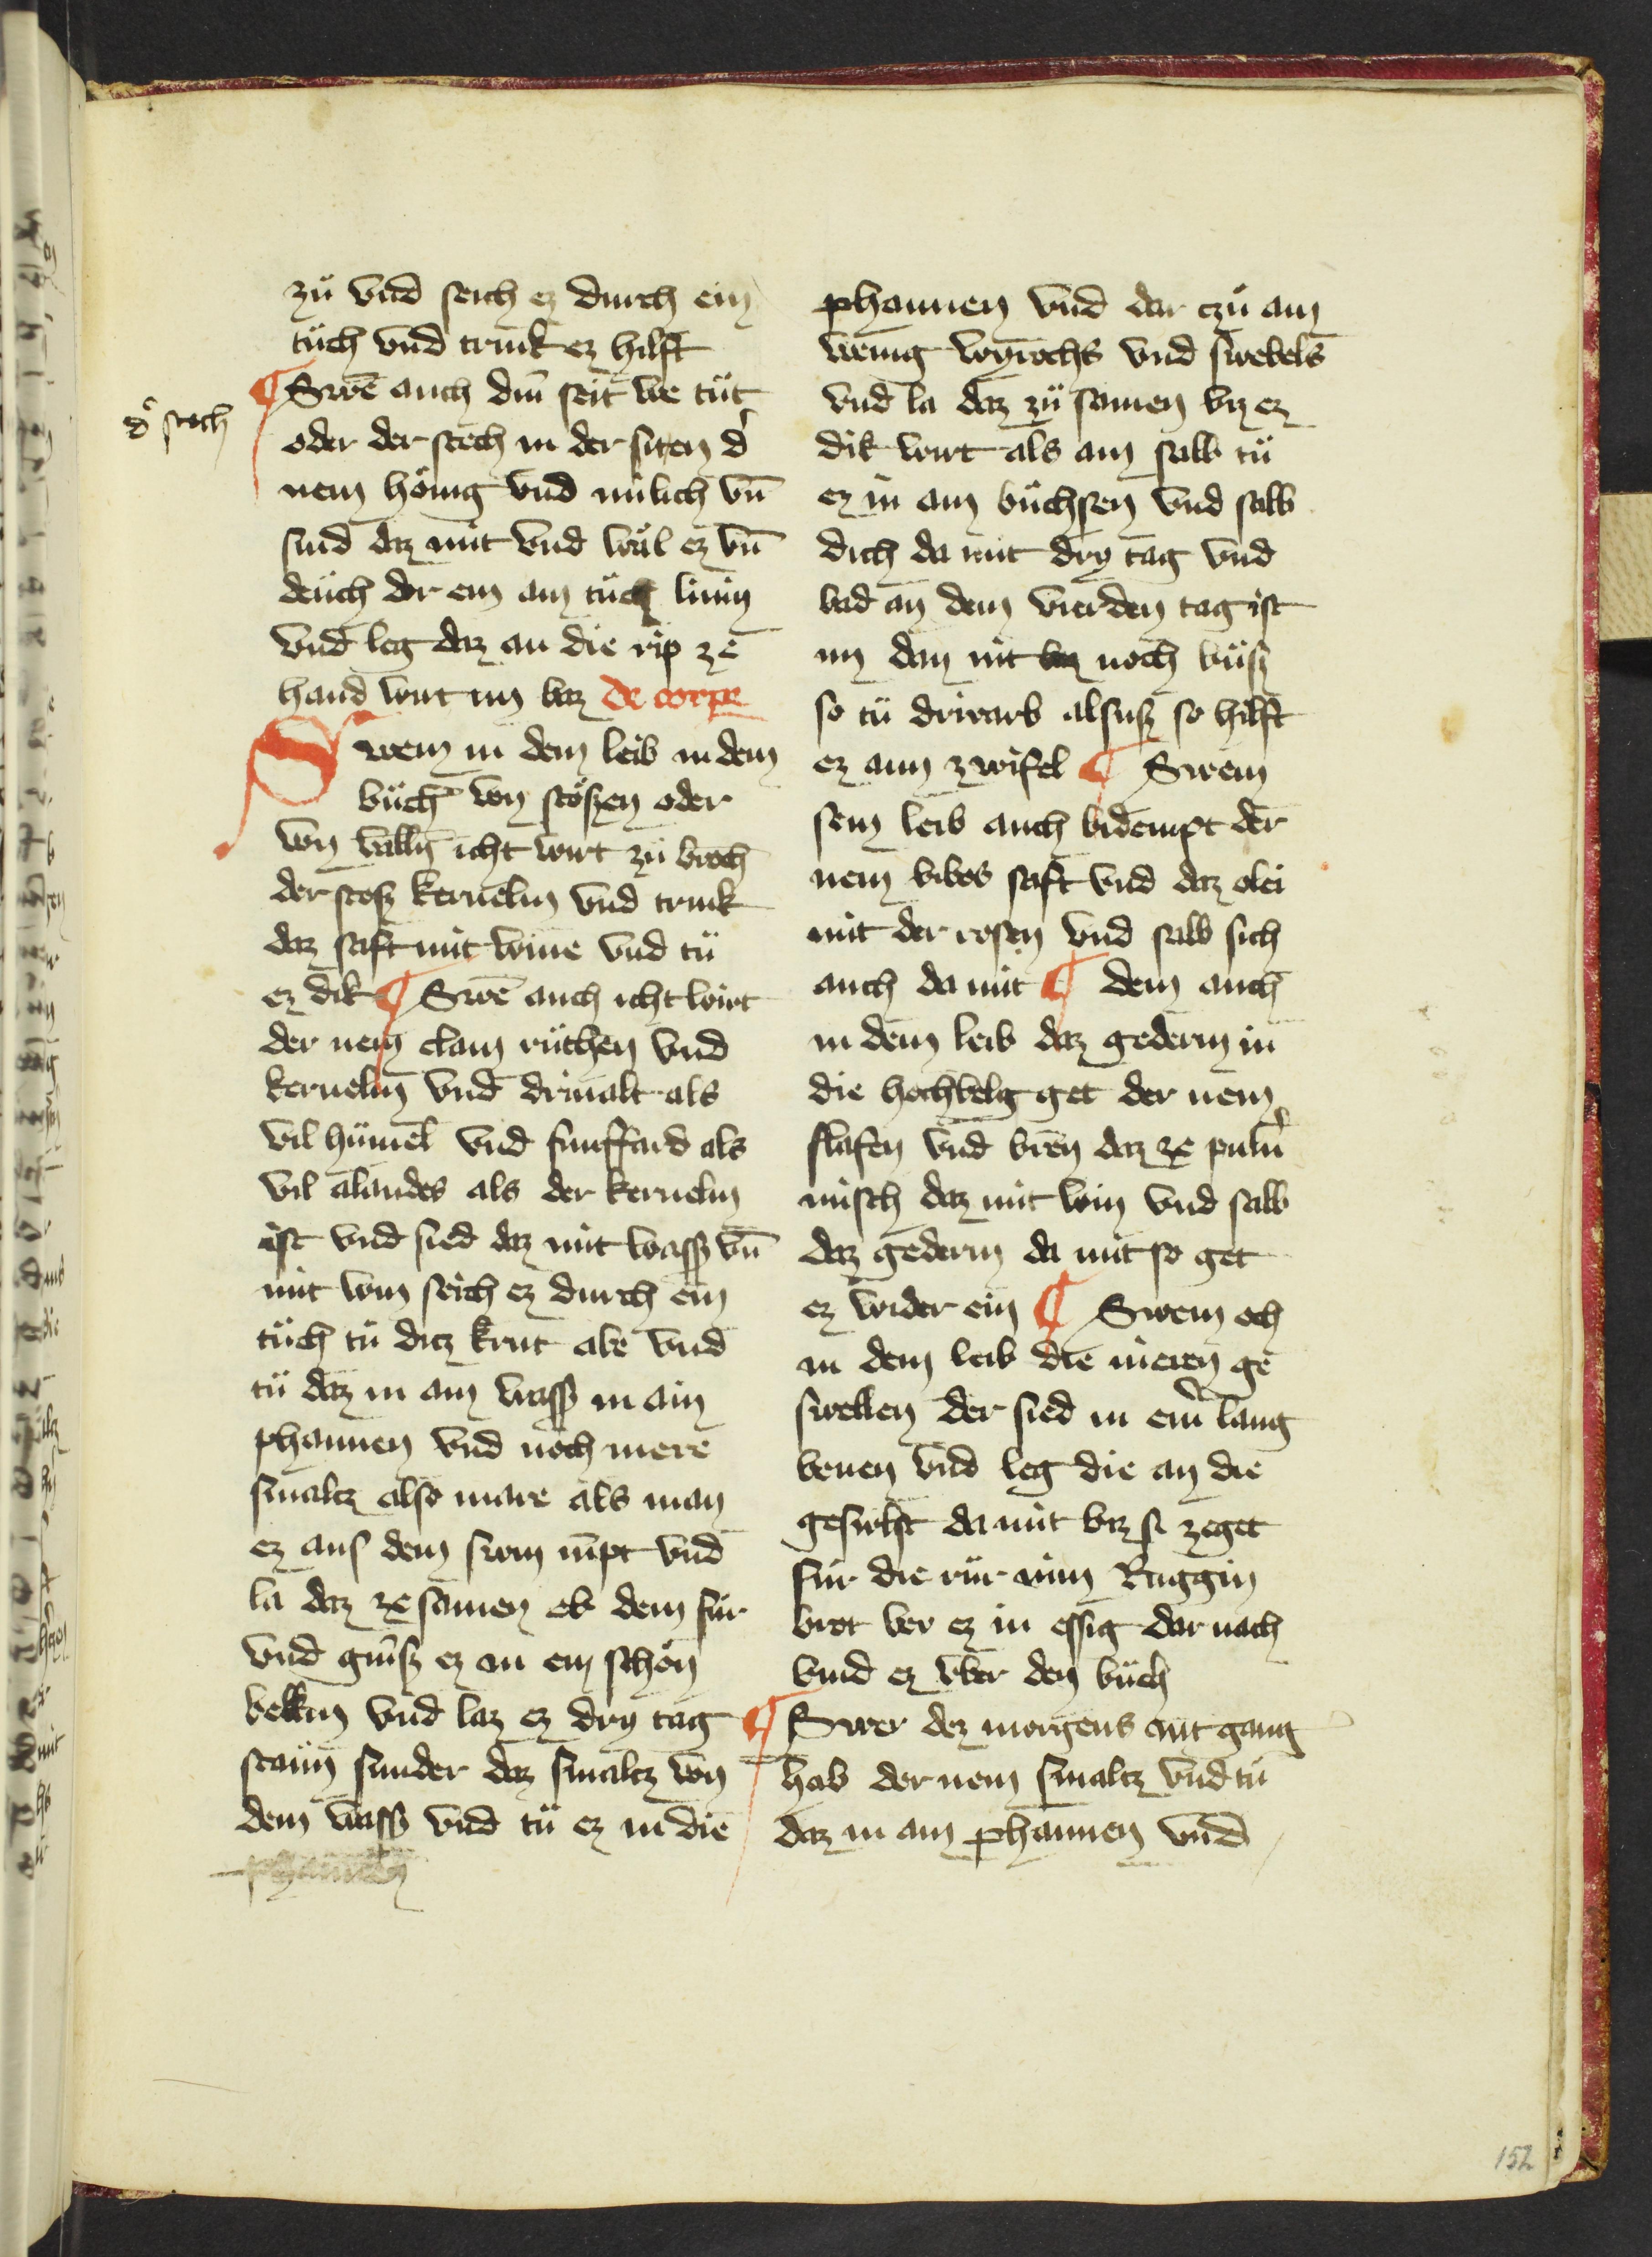 zuͤ vnd seich ez durch ein
tuͤch vnd trink ez hilft
¶ Swē auch diu seit we tuͤt
dˢ stech
oder der stech in der siten dˢ
nem hoͤnig vnd milich vn̄
sind daz mit vnd wuͤl ez vn̄
deuch der ein ain tuͤch linin
vnd leg daz an die rip ze
hand wirt im baz de corpe
Swem in dem leib in dem
buͤch von stoͤszen oder
von valln icht wirt zuͤ broch
der stosz keruelin vnd trink
daz saft mit wine vnd tuͤ
ez dik ¶ Swē auch icht wirt
der nem clain ruͤthen vnd
keruelin vnd driualt als
vil huͤmel vnd funffaid als
vil alandes als der keruelin
ist vnd sied daz mit wassˢ vn̄
mit win seich ez durch ein
tuͤch tuͤ ditz krut abe vnd
tuͤ daz in ain vassˢ in ain
phannen vnd noch mere
smaltz also mare als man
ez aus dem swin nīpt vnd
la daz ze samen ob dem fur
vnd guͤsz ez in ein schoͤn
bekkin vnd laz ez dry tag
staun sunder daz smaltz von
dem wassˢ vnd tuͤ ez in die
phannen
phannen vnd dar czuͤ ain
wenig wyrochs vnd swebels
vnd la daz zuͤ samen biz ez
dik wirt als ain salb tuͤ
ez in ain buͤchsen vnd salb
dich da mit dry tag vnd
bad an dem vierden tag ist
im dan nit baz noch buͤsz
so tuͤ driwarb alsusz so hilft
ez ann zwifel ¶ Swem
sein leib auch bidempt der
nem bibos saft vnd daz olei
mit der rosen vnd salb sich
auch da mit ¶ dem auch
in dem leib daz gederm in
die hochbelg get der nem
slafen vnd bren daz ze puluˢ
misch daz mit win vnd salb
daz gederm da mit so get
ez wider ein ¶ Swem och
in dem leib die nieren ge
swellen der sied in einˢ laug
benen vnd leg die an die
geswlst da mit biz si zeget
fuͤr die ruͤr nim Ruggin
brot ber ez in essig dar nach
bind ez vͤber den buͤch
¶ Swer dez morgens ant gang
hab der nem smaltz vnd tuͤ
daz in ain phannen vnd
152